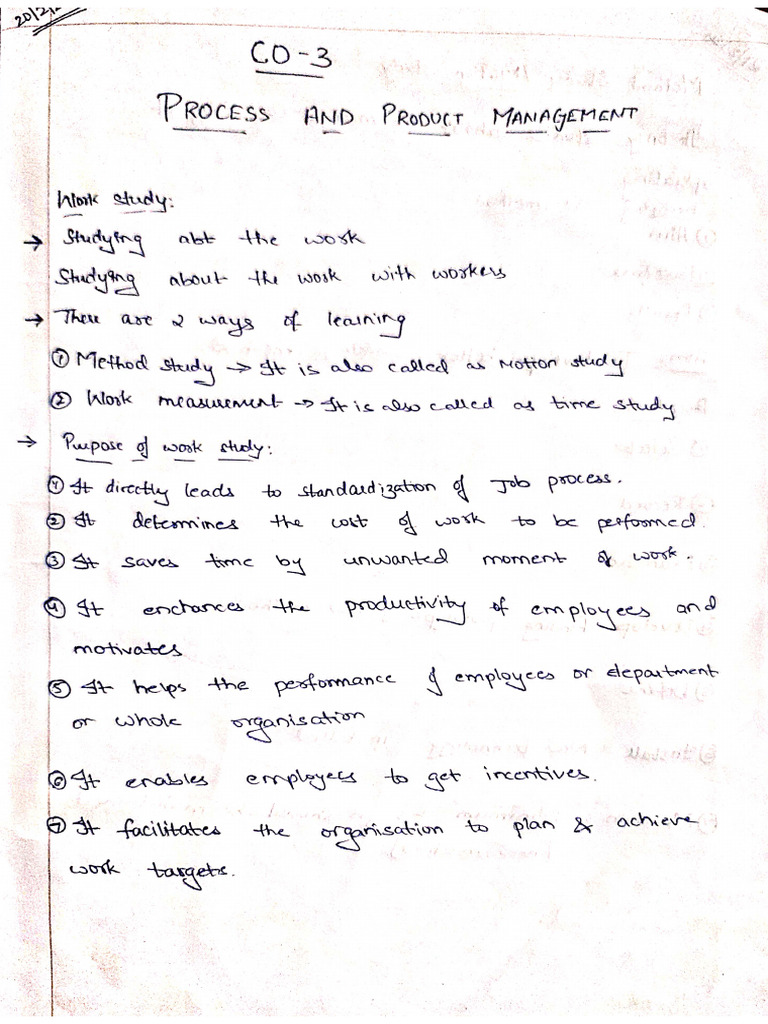 20/2/2
CO-3
PROCESS AND PRODUCT MANAGEMENT
Work study:
→ Studying abt the work
Studying about the work with workers
→ There are 2 ways of learning
① Method study → It is also called as Motion study
② Work measurement → It is also called as time study
→ Purpose of work study:
① It directly leads to standardization of Job process.
② It determines the cost of work to be performed.
③ It saves time by unwanted moment of work.
④ It enchances the productivity of employees and
motivates
⑤ It helps the performance of employees or department
or whole organisation
⑥ It enables employees to get incentives.
⑦ It facilitates the organisation to plan & achieve
work targets.